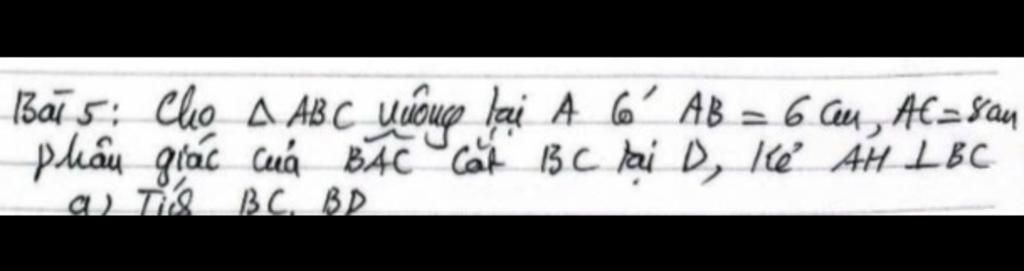 Bài 5: Cho △ ABC vuông tại A có AB = 6 cm, AC = 8 cm
phân giác của BAC cắt BC tại D, Kẻ AH ⊥ BC
a) Tính BC, BD